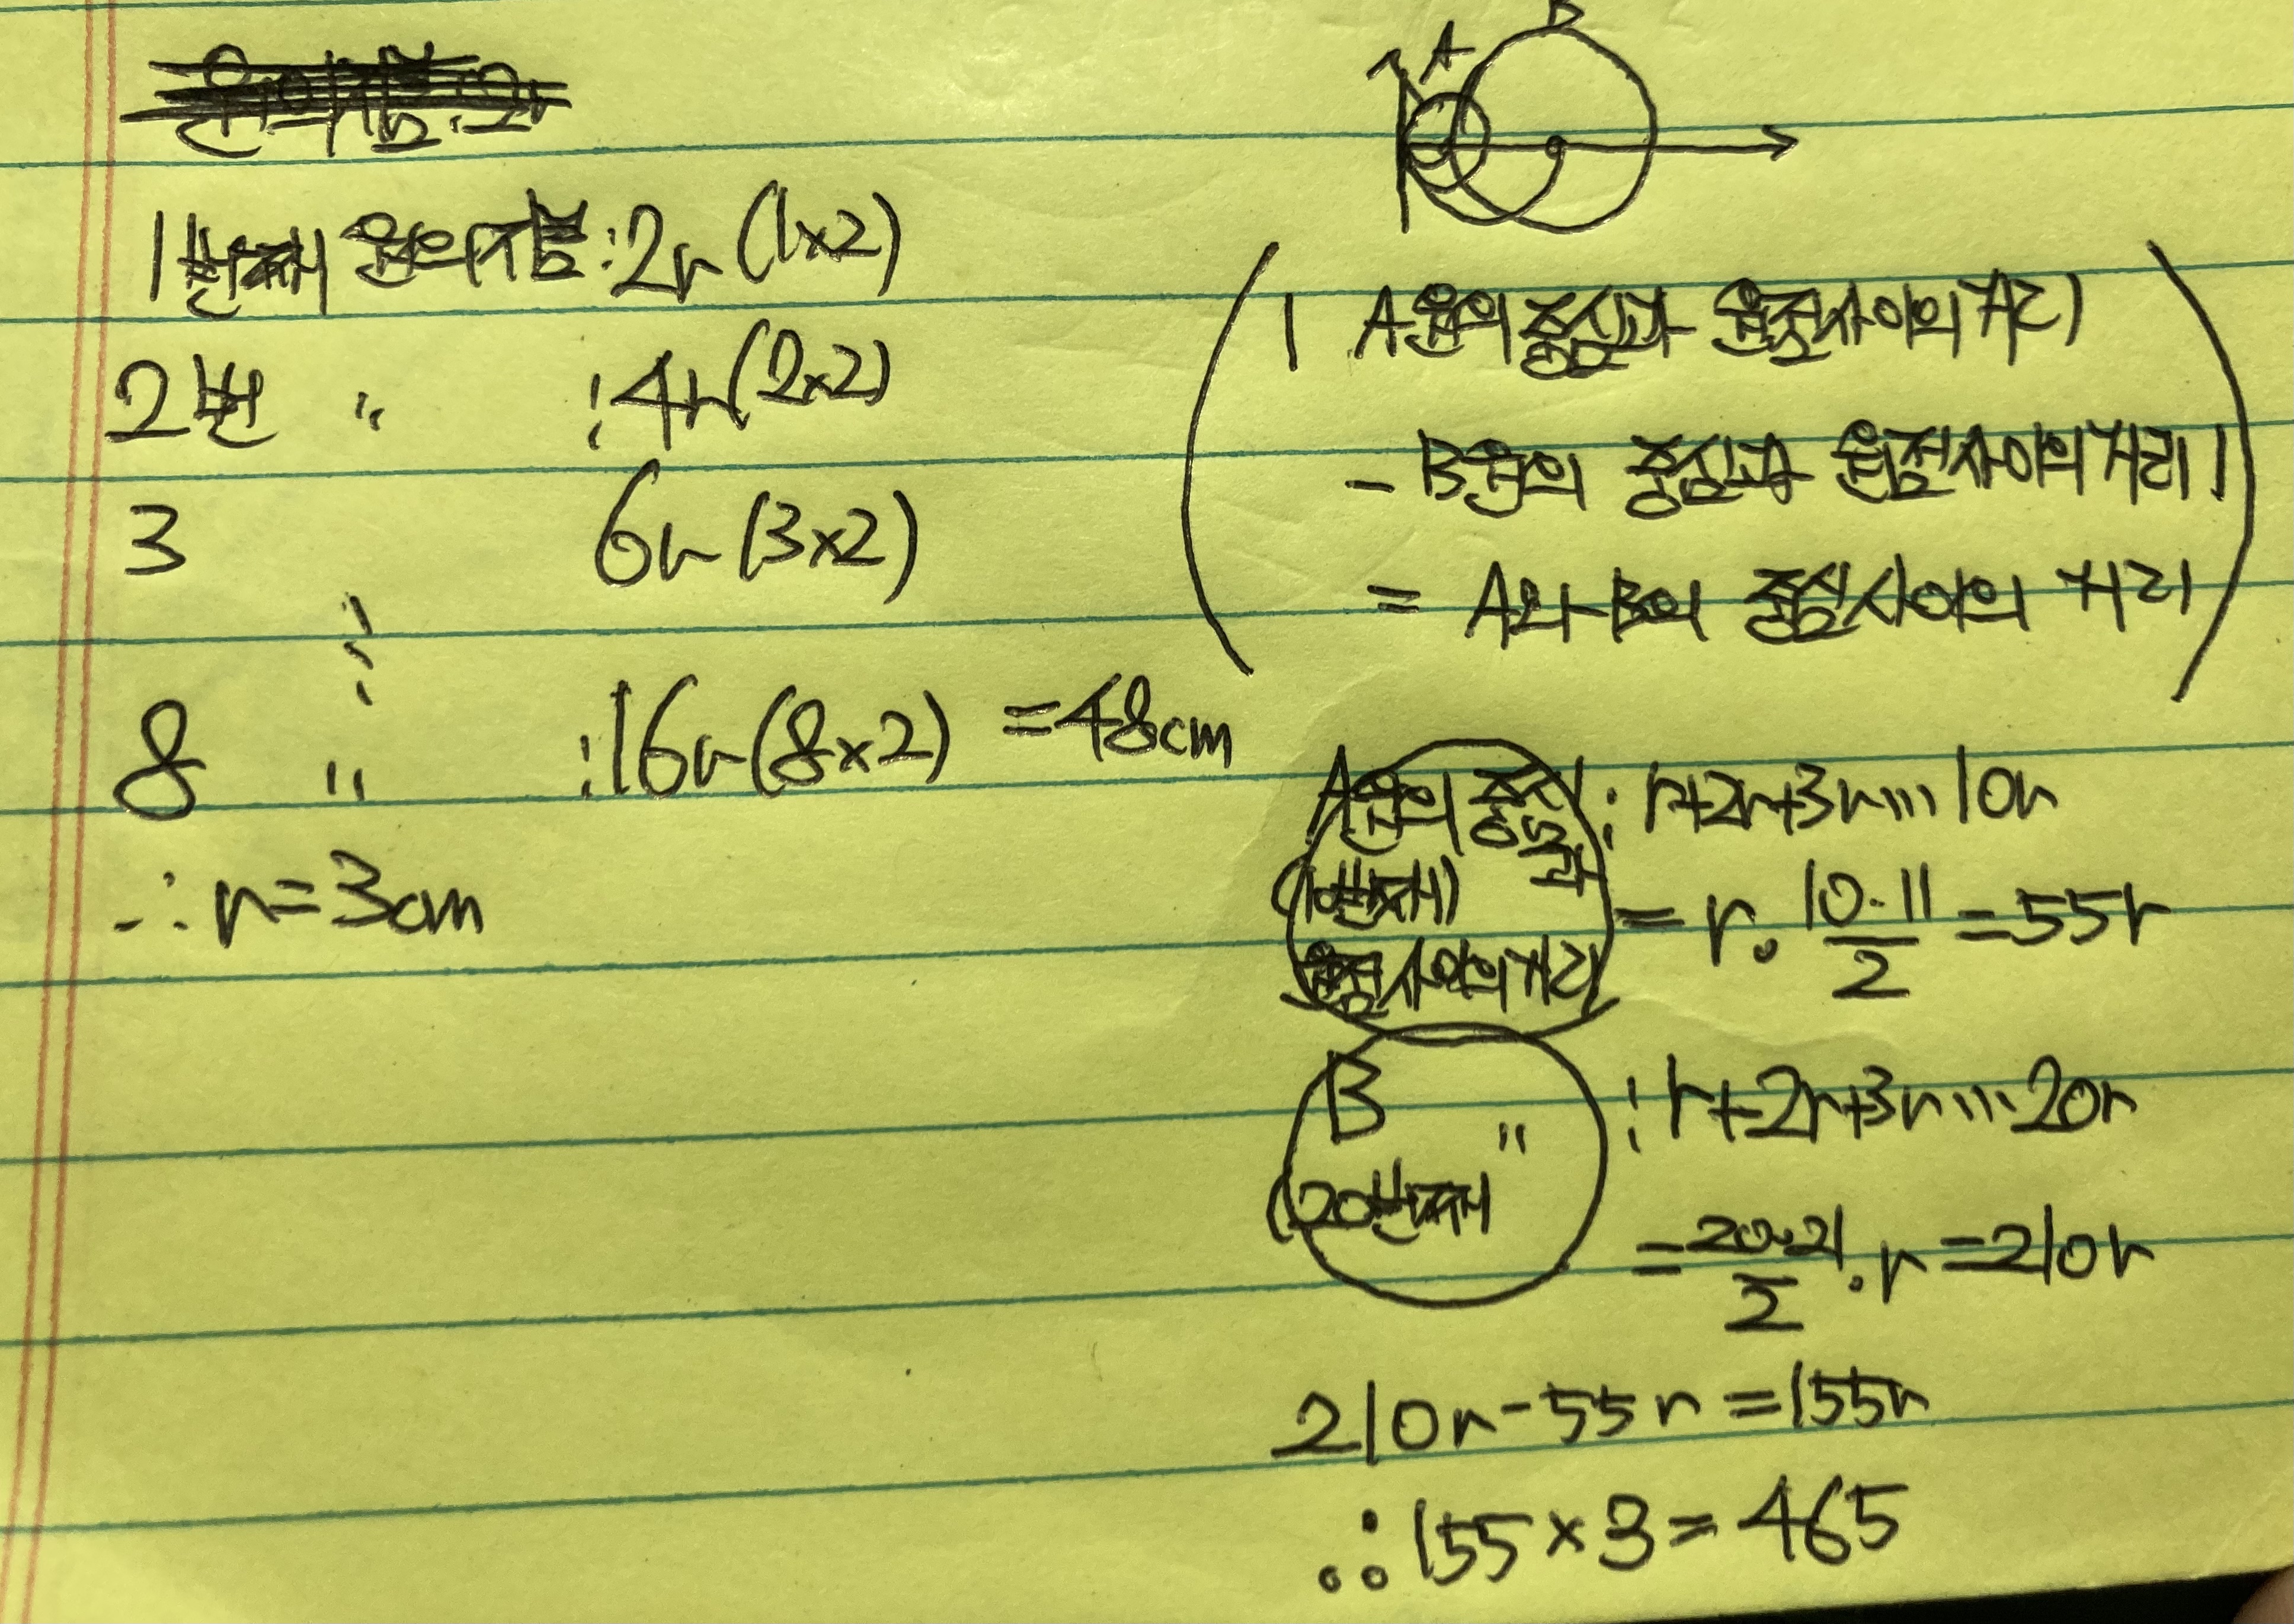 1번째 원의 지름 : 2r (1×2)
2번 〃 : 4r (2×2)
3 6r (3×2)
⋮
8 〃 : 16r (8×2) = 48cm
∴ r = 3cm
A
B
| A원의 중심과 원점사이의 거리
- B원의 중심과 원점사이의 거리 |
= A와 B의 중심사이의 거리
A원의 중심과 : r+2r+3r ··· 10r
(10번째)
원점사이의 거리
= r · \frac{10·11}{2} = 55r
B 〃 : r+2r+3r ··· 20r
(20번째
= \frac{20·21}{2} · r = 210r
210r - 55r = 155r
∴ 155 × 3 = 465